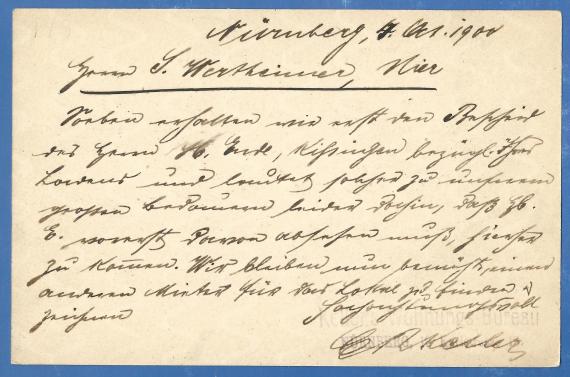 Nürnberg, 4. Oct. 1900
Herrn S. Wertheimer, Hier
Soeben erhalten wir erst den Bescheid
des Herrn Hb. Ende, Kissingen bezügl. Ihres
Ladens und lautet solcher zu unserem
großen Bedauern leider dahin, daß Hb.
E. vorerst davon absehen muß, hierher
zu kommen. Wir bleiben nun bemüht, einen
anderen Mieter für das Lokal zu finden &
zeichnen Hochachtungsvoll
Wohnungs-Bureau
Keller